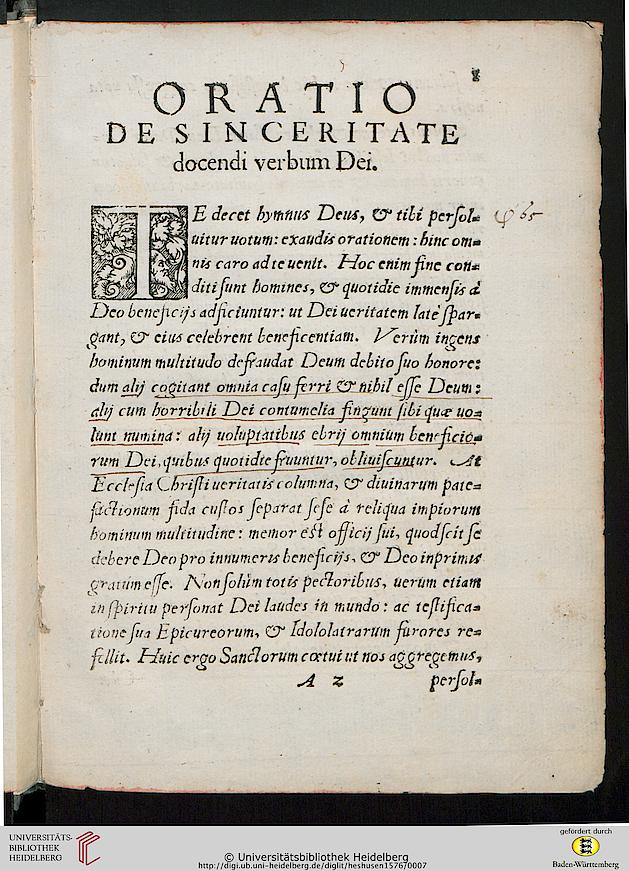 ORATIO
DE SINCERITATE
docendi verbum Dei.
TE decet hymnus Deus, & tibi persol=
uitur uotum: exaudis orationem: hinc om=
nis caro ad te uenit. Hoc enim fine con=
diti sunt homines, & quotidie immensis à
Deo beneficijs adficiuntur: ut Dei ueritatem latè spar=
gant, & eius celebrent beneficentiam. Verùm ingens
hominum multitudo defraudat Deum debito suo honore:
dum alij cogitant omnia casu ferri & nihil esse Deum:
alij cum horribili Dei contumelia fingunt sibi quæ uo=
lunt numina: alij uoluptatibus ebrij omnium beneficio=
rum Dei, quibus quotidie fruuntur, obliuiscuntur. At
Ecclesia Christi ueritatis columna, & diuinarum pate=
factionum fida custos separat sese à reliqua impiorum
hominum multitudine: memor est officij sui, quod scit se
debere Deo pro innumeris beneficijs, & Deo inprimis
gratum esse. Non solùm totis pectoribus, uerùm etiam
in spiritu personat Dei laudes in mundo: ac testifica=
tione sua Epicureorum, & Idololatrarum furores re=
fellit. Huic ergo Sanctorum cœtui ut nos aggregemus,
A 2 persol=
65
UNIVERSITÄTS-
BIBLIOTHEK
HEIDELBERG
© Universitätsbibliothek Heidelberg
http://digi.ub.uni-heidelberg.de/diglit/heshusen1576/0007
gefördert durch
Baden-Württemberg